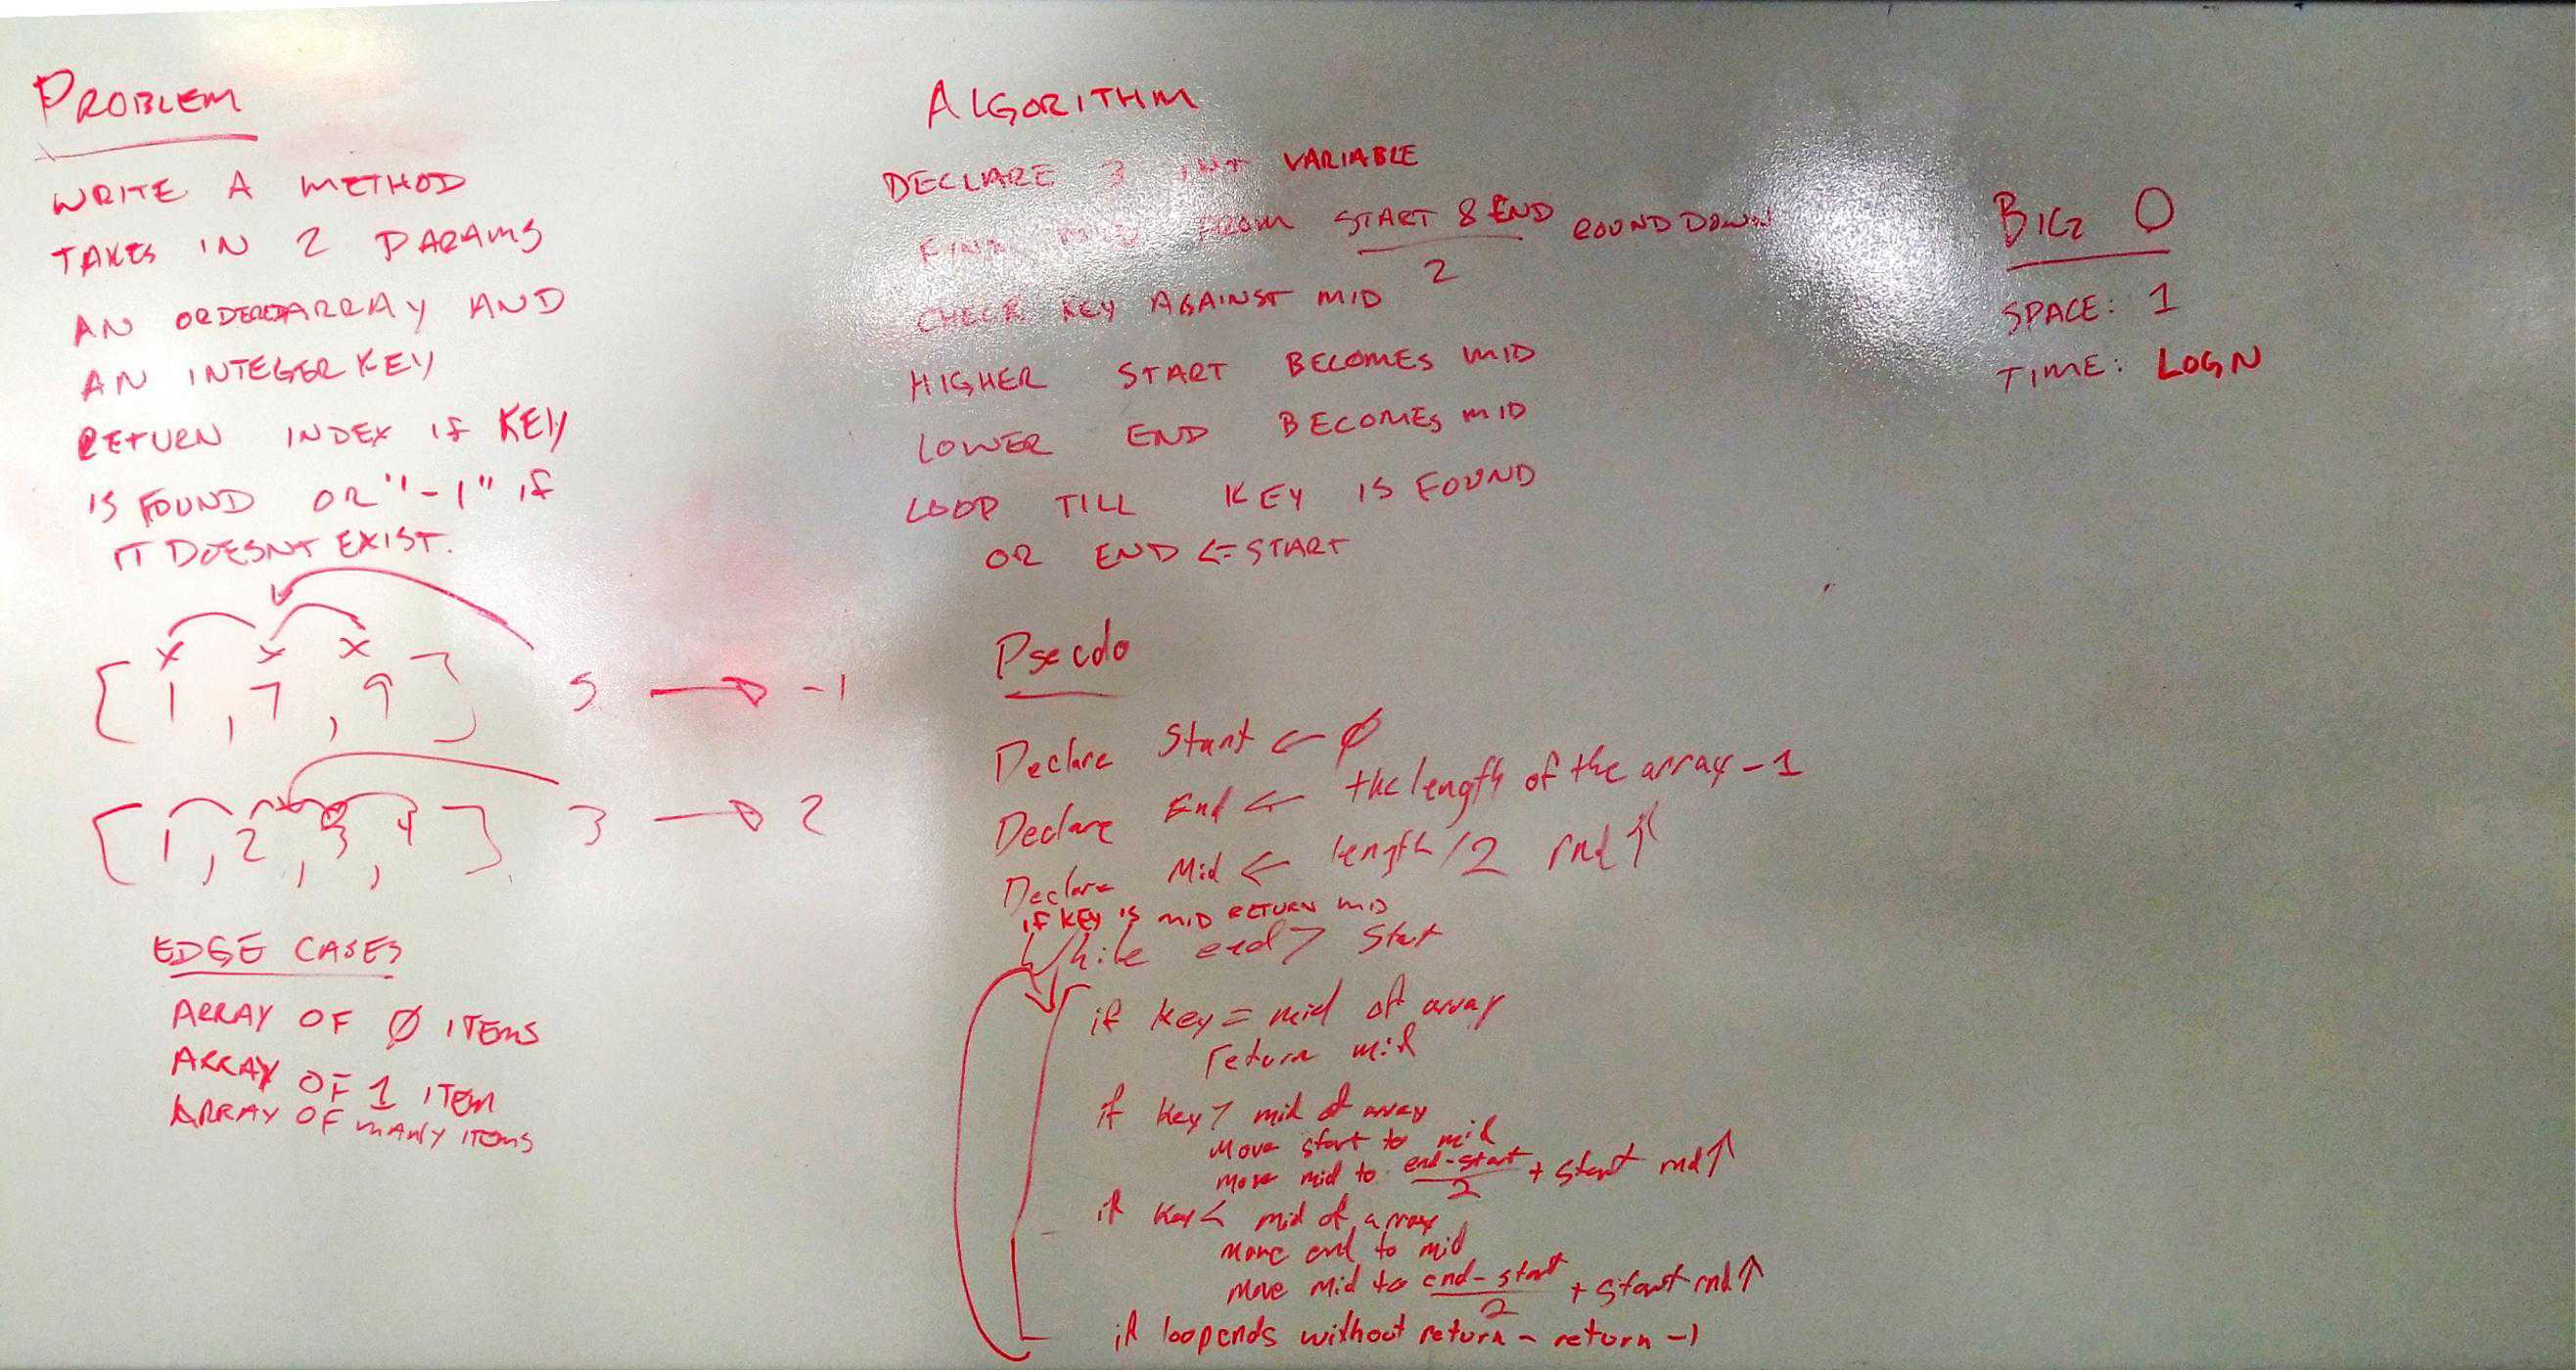 PROBLEM
WRITE A METHOD
TAKES IN 2 PARAMS
AN ORDERED ARRAY AND
AN INTEGER KEY
RETURN INDEX IF KEY
IS FOUND OR "-1" IF
IT DOESNT EXIST.
x x x
[1, 7, 9] 5 → -1
[1, 2, 3, 4] 3 → 2
EDGE CASES
ARRAY OF Ø ITEMS
ARRAY OF 1 ITEM
ARRAY OF MANY ITEMS
ALGORITHM
DECLARE 3 INT VARIABLE
FIND MID FROM START & END ROUND DOWN
2
CHECK KEY AGAINST MID
HIGHER START BECOMES MID
LOWER END BECOMES MID
LOOP TILL KEY IS FOUND
OR END <= START
Psecdo
Declare Start ← Ø
Declare End ← the length of the array - 1
Declare Mid ← length / 2 rnd ↑
IF KEY IS MID RETURN MID
While end > Start
if key = mid of array
return mid
if key > mid of array
Move start to mid
move mid to end-start + Start rnd ↑
2
if key < mid of array
move end to mid
move mid to end-start + start rnd ↑
2
if loop ends without return - return -1
BIG O
SPACE: 1
TIME: LOGN